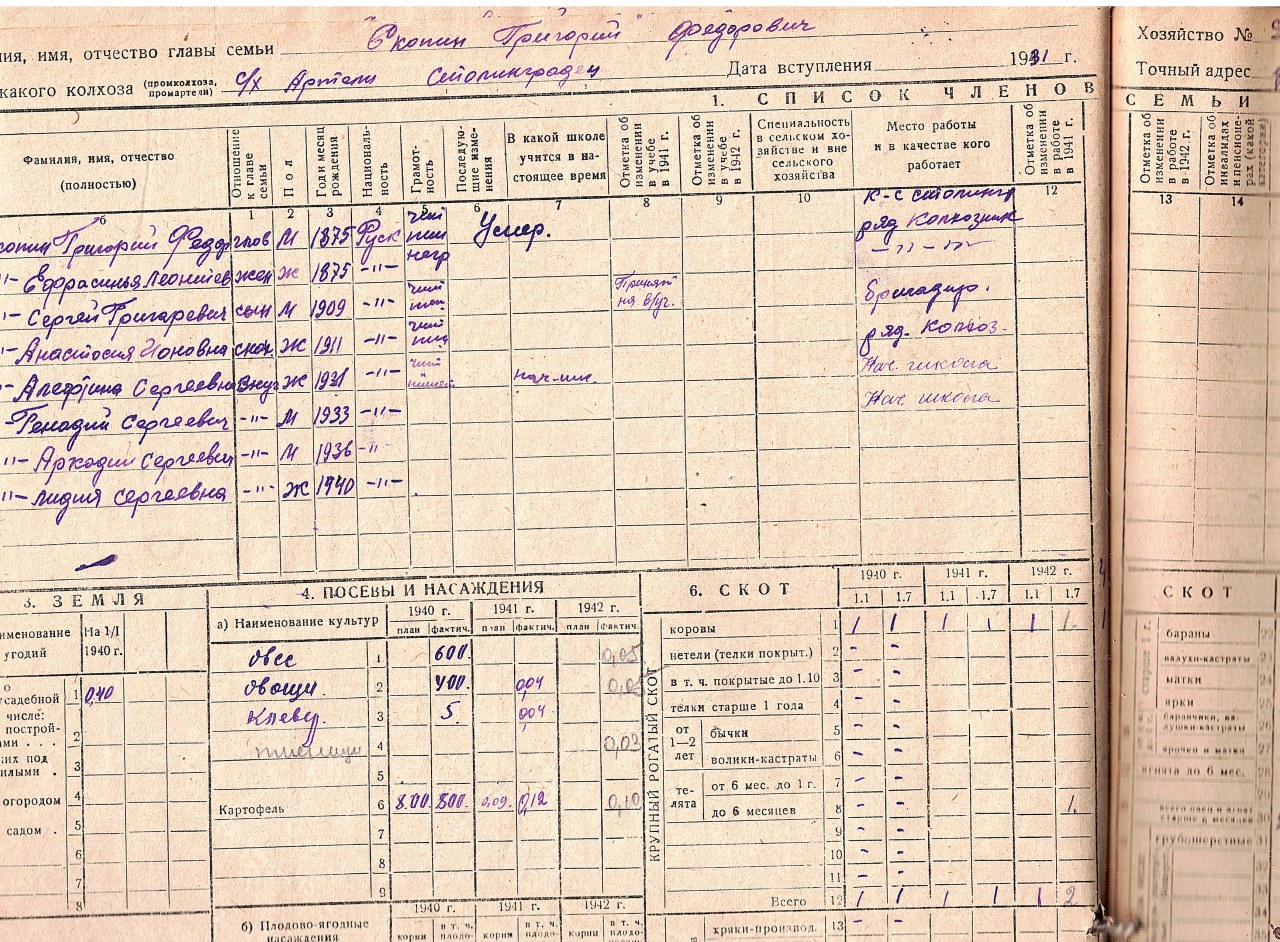 ия, имя, отчество главы семьи Скопин Григорий Федорович
какого колхоза (промколхоза, промартели) с/х Артели Сталинградец Дата вступления 1931 г.
1. СПИСОК ЧЛЕНОВ
Фамилия, имя, отчество (полностью) Отношение к главе семьи Пол Год и месяц рождения Националь-ность Грамот-ность Последую-щие изме-нения В какой школе учится в на-стоящее время Отметка об изменении в учебе в 1941 г. Отметка об изменении в учебе в 1942 г. Специальность в сельском хо-зяйстве и вне сельского хозяйства Место работы и в качестве кого работает Отметка об изменении в работе в 1941 г.
б 1 2 3 4 5 6 7 8 9 10 12
копин Григорий Федор глов М 1875 Руск чит Умер. к-с сталингр ряд Колхозник
"- Ефрасинья Леонтьев жен Ж 1875 -"- негр -"-
"- Сергей Григаревич сын М 1909 -"- чит Принят на В/уч. бригадир.
"- Анастосия Ионовна снох Ж 1911 -"- чит ряд. Колхоз.
- Алефтина Сергеевна Внуч Ж 1931 -"- чит нач. шк. Нач. школа
- Генадий Сергеевич -"- М 1933 -"- Нач школа
"- Аркадий Сергеевич -"- М 1936 -"
"- Лидия Сергеевна -"- Ж 1940 -"-
3. ЗЕМЛЯ
именование угодий На 1/I 1940 г.
садебной 1 0,40
числе:
построй-
ами . . . 2
ких под
илыми . 3
огородом 4
садом . 5
6
7
8
4. ПОСЕВЫ И НАСАЖДЕНИЯ
а) Наименование культур 1940 г. 1941 г. 1942 г.
план фактич. план фактич. план фактич.
Овес 1 600. 0,05
Овощи. 2 400. 0,04 0,05
Клевер. 3 5. 0,04
пшеница 4 0,03
5
Картофель 6 8.00. 800. 0,09. 0,12 0,10
7
8
9
1940 г. 1941 г. 1942 г.
б) Плодово-ягодные насаждения корни в т. ч. плодо- корни в т. ч. плодо- корни в т. ч. плодо-
6. СКОТ
1940 г. 1941 г. 1942 г.
1.1 1.7 1.1 1.7 1.1 1.7
КРУПНЫЙ РОГАТЫЙ СКОТ
коровы 1 1 1 1 1 1 1.
нетели (телки покрыт.) 2 - -
в т. ч. покрытые до 1.10 3 - -
телки старше 1 года 4 - -
от 1—2 лет бычки 5 - -
волики-кастраты 6 - -
те-лята от 6 мес. до 1 г. 7 - -
до 6 месяцев 8 - - 1.
9 - -
10 - -
11 - -
Всего 12 1 1 1 1 1 2
хряки-производ. 13 - -
Хозяйство №
Точный адрес
СЕМЬИ
Отметка об изменении в работе в 1942 г. Отметка об инвалидах и пенсионе-рах (какой категории)
13 14
СКОТ
старше 1 г.
бараны 22
валухи-кастраты 23
матки 24
ярки 25
баранчики, ва-лушки-кастраты 26
ярочки и матки 27
ягнята до 6 мес. 28
грубошерстные 31